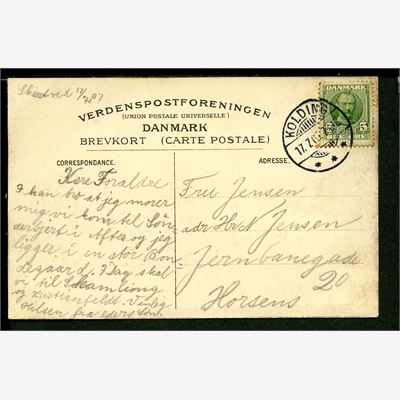 Skanderup d 17/7 07
VERDENSPOSTFORENINGEN
(UNION POSTALE UNIVERSELLE)
DANMARK
BREVKORT (CARTE POSTALE)
DANMARK
5 5
KOLDING
17.7
CORRESPONDANCE.
Kære Forældre
I kan tro at jeg morer
mig vi kom til Søn
bjert i Aftes og jeg
ligger i en stor Bon
degaard. I Dag skal
vi til Skamling
og Kristiansfeldt. Venlig
Hilsen fra eders Søn
ADRESSE.
Fru Jensen
adr Hr N Jensen
Jernbanegade
20
Horsens